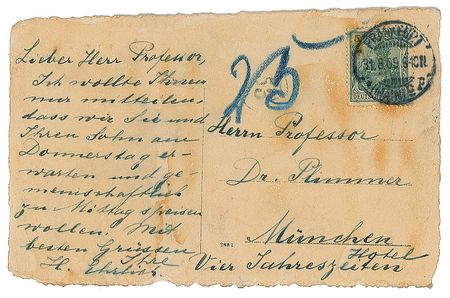 Lieber Herr Professor,
Ich wollte Ihnen
nur mitteilen,
dass wir Sie und
Ihren Sohn am
Donnerstag er-
warten und ge-
meinschaftlich
zu Mittag speisen
wollen. Mit
besten Grüssen
Ihre
H. Ehrlich.
FRANKFURT
Herrn Professor
Dr. Plimmer
München
Hotel
Vier Jahreszeiten